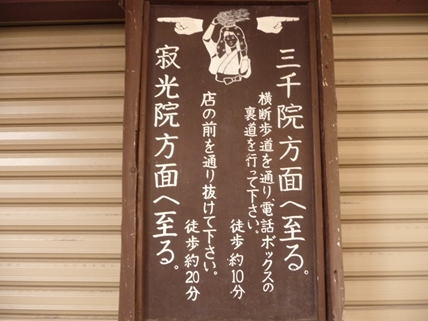 三千院方面へ至る。
横断歩道を通り、電話ボックスの
裏道を行って下さい。
徒歩約10分
店の前を通り抜けて下さい。
徒歩約20分
寂光院方面へ至る。